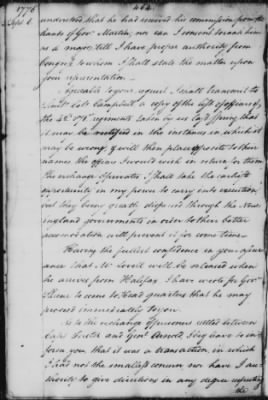 1776 464
Sept. 6
understood that he had received his commission from the
hands of Gov. Martin, nor can I consent to rank him
as a major till I have proper authority from
Congress to whom I shall state the matter upon
your representation —
Agreeable to your request I shall transmit to
Lieut. Col. Campbell a copy of the list of officers of
the 42 & 71 regiments taken by us last Spring that
it may be rectified in the instances in which it
may be wrong, & will then place opposite to their
names the officers I would wish in return for them
The exchange of privates I shall take the earliest
opportunity in my power to carry into execution
but they being greatly dispersed through the New
england governments in order to their better
accomodation will prevent it for some time —
Having the fullest confidence in your assur
ance that Mr. Lovell will be released when
he arrives from Halifax I have wrote for Gov.
Skene to come to head quarters that he may
proceed immediately to you —
As to the exchange of prisoners settled between
Capt. Foster and Genl. Arnold I beg leave to in
form you that it was a transaction in which
I had not the smallest concern, nor have I au
thority to give directions in any degree respecting
the